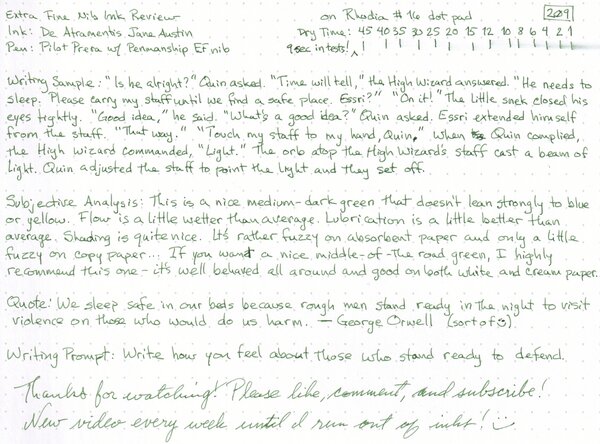 Extra Fine Nib Ink Review on Rhodia #16 dot pad 209
Ink: De Atramentis Jane Austin Dry Time: 45 40 35 30 25 20 15 12 10 8 6 4 2 1
Pen: Pilot Prera w/ Penmanship EF nib 9 sec in tests!
Writing Sample: "Is he alright?" Quin asked. "Time will tell," the High Wizard answered. "He needs to
sleep. Please carry my staff until we find a safe place. Essri?" "On it!" The little snek closed his
eyes tightly. "Good idea," he said. "What's a good idea?" Quin asked. Essri extended himself
from the staff. "That way." "Touch my staff to my hand, Quin." When Quin complied,
the High Wizard commanded, "Light." The orb atop the High Wizard's staff cast a beam of
light. Quin adjusted the staff to point the light and they set off.
Subjective Analysis: This is a nice medium-dark green that doesn't lean strongly to blue
or yellow. Flow is a little wetter than average. Lubrication is a little better than
average. Shading is quite nice. It's rather fuzzy on absorbent paper and only a little
fuzzy on copy paper... If you want a nice middle-of-the road green, I highly
recommend this one - it's well behaved all around and good on both white and cream paper.
Quote: We sleep safe in our beds because rough men stand ready in the night to visit
violence on those who would do us harm. — George Orwell (sort of :)
Writing Prompt: Write how you feel about those who stand ready to defend.
Thanks for watching! Please like, comment, and subscribe!
New video every week until I run out of inks! :)